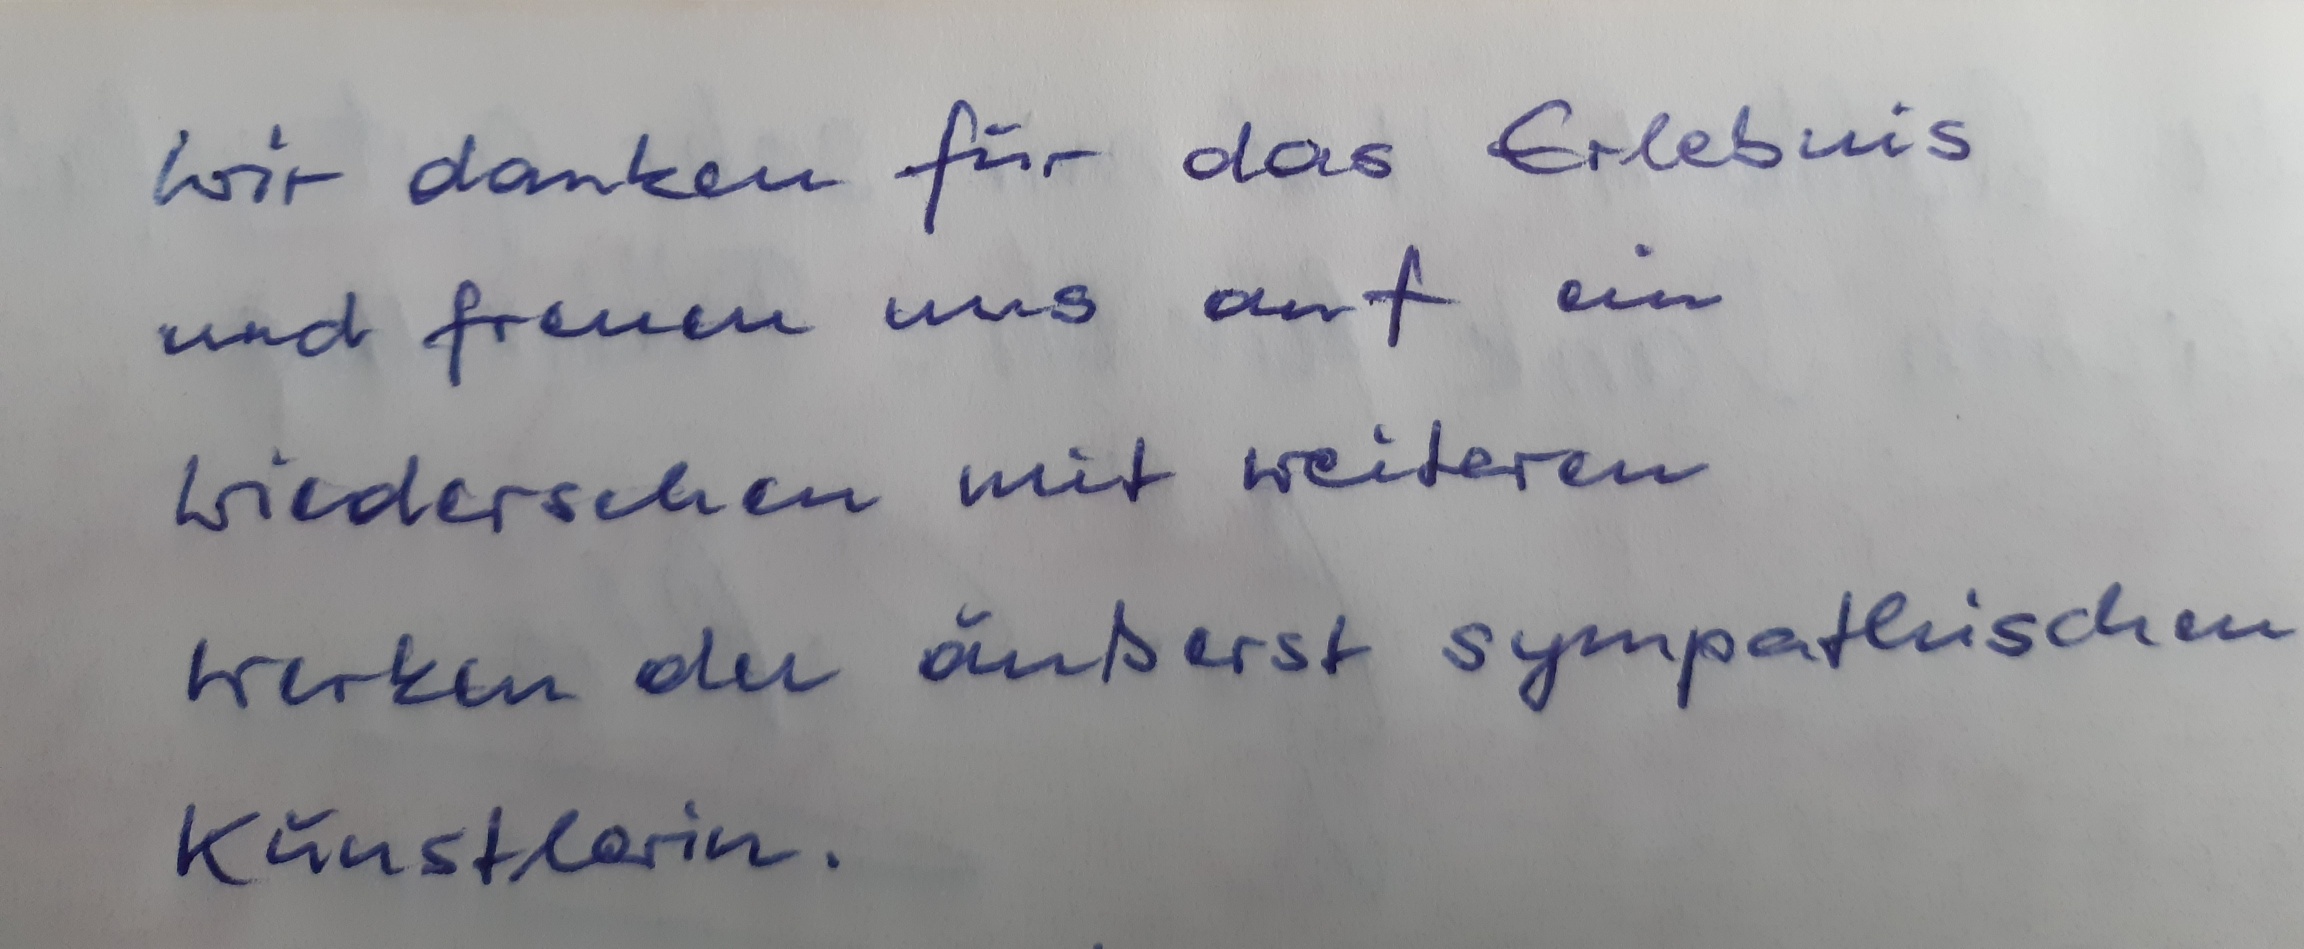 Wir danken für das Erlebnis
und freuen uns auf ein
Wiedersehen mit weiteren
Werken der äußerst sympathischen
Künstlerin.